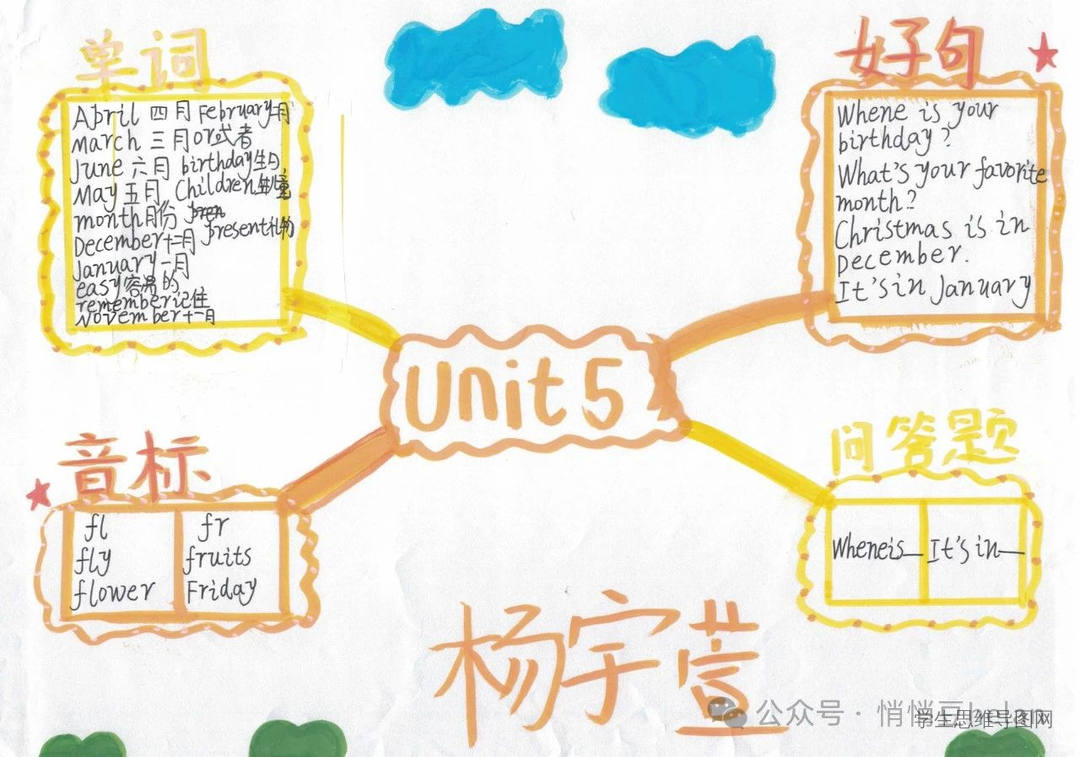 单词
April 四月 February二月
March 三月 or或者
June 六月 birthday生日
May 五月 Children儿童
month月份
December十二月 present礼物
January一月
easy容易的
remember记住
November十一月
好句
Whene is your
birthday?
What's your favorite
month?
Christmas is in
December.
It's in January
Unit 5
音标
fl
fly
flower
fr
fruits
Friday
问答题
Wheneis—
It's in—
杨宇萱
公众号 · 悄悄豆
学生思维导图网